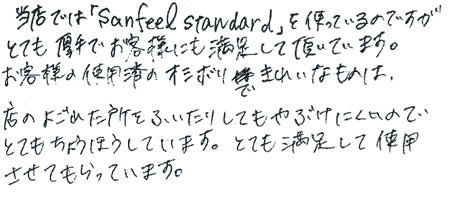 当店では「Sanfeel standard」を使っているのですが
とても厚手でお客様にも満足して頂いています。
お客様の使用済のオシボリできれいなものは、
店のよごれた所をふいたりしてもやぶけにくいので
とてもちょうほうしています。とても満足して使用
させてもらっています。